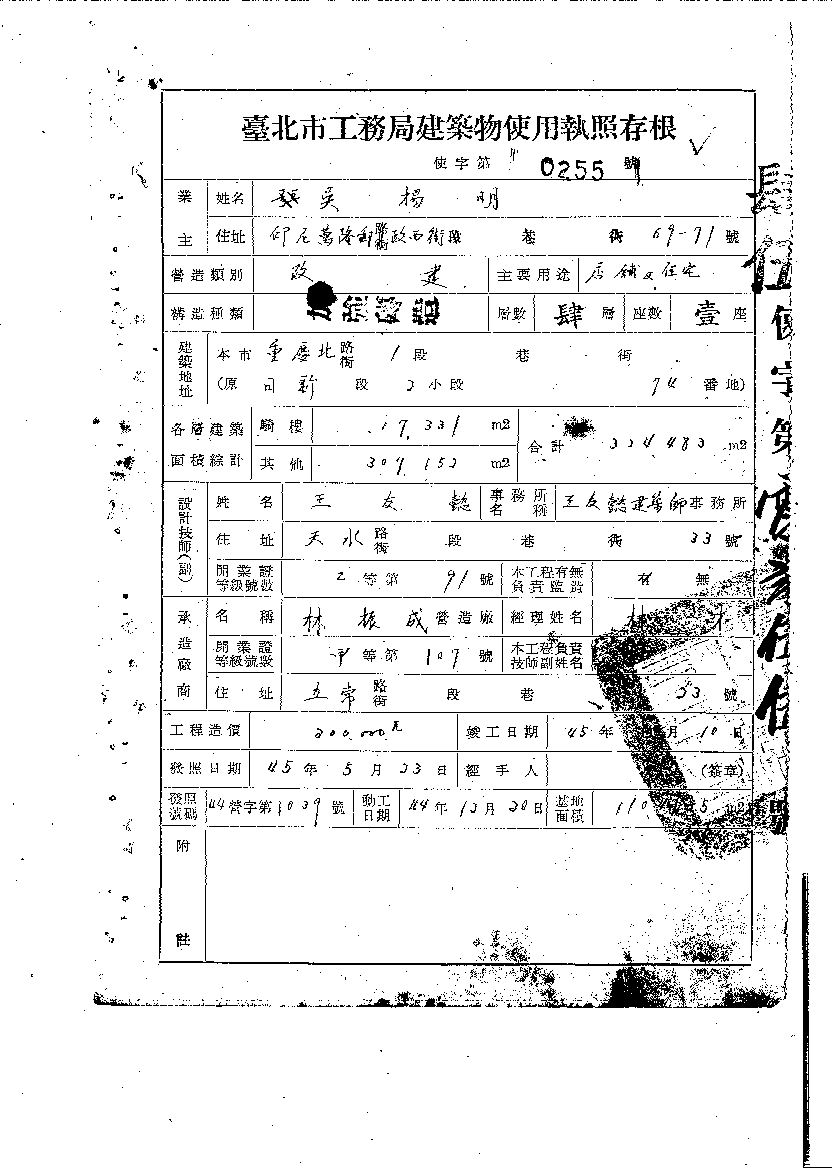 臺北市工務局建築物使用執照存根
使字第 0255 號
業主 姓名 吳楊明
住址 印尼萬隆郵政西街段 巷 街 69-71 號
營造類別 改建 主要用途 店鋪及住宅
構造種類 層數 肆 層 座數 壹 座
建築地址 本市 重慶北 路街 1 段 巷 街
(原 日新 段 2 小段 74 番地)
各層建築面積綜計 騎樓 17.331 m2 合計 324.483 m2
其他 307.152 m2
設計技師(副) 姓名 王友懿 事務所名稱 王友懿建築師事務所
住址 天水 路街 段 巷 街 33 號
開業證等級號數 2 等第 91 號 本工程有無負責監造 有 無
承造廠商 名稱 林振成營造廠 經理姓名 林 木
開業證等級號數 甲 等第 107 號 本工程負責技師副姓名
住址 五常 路街 段 巷 33 號
工程造價 200,000元 竣工日期 45 年 月 10 日
發照日期 45 年 5 月 23 日 經手人 (簽章)
發照號碼 44營字第1039號 動工日期 44 年 12 月 20 日 基地面積 110
附註
使字第